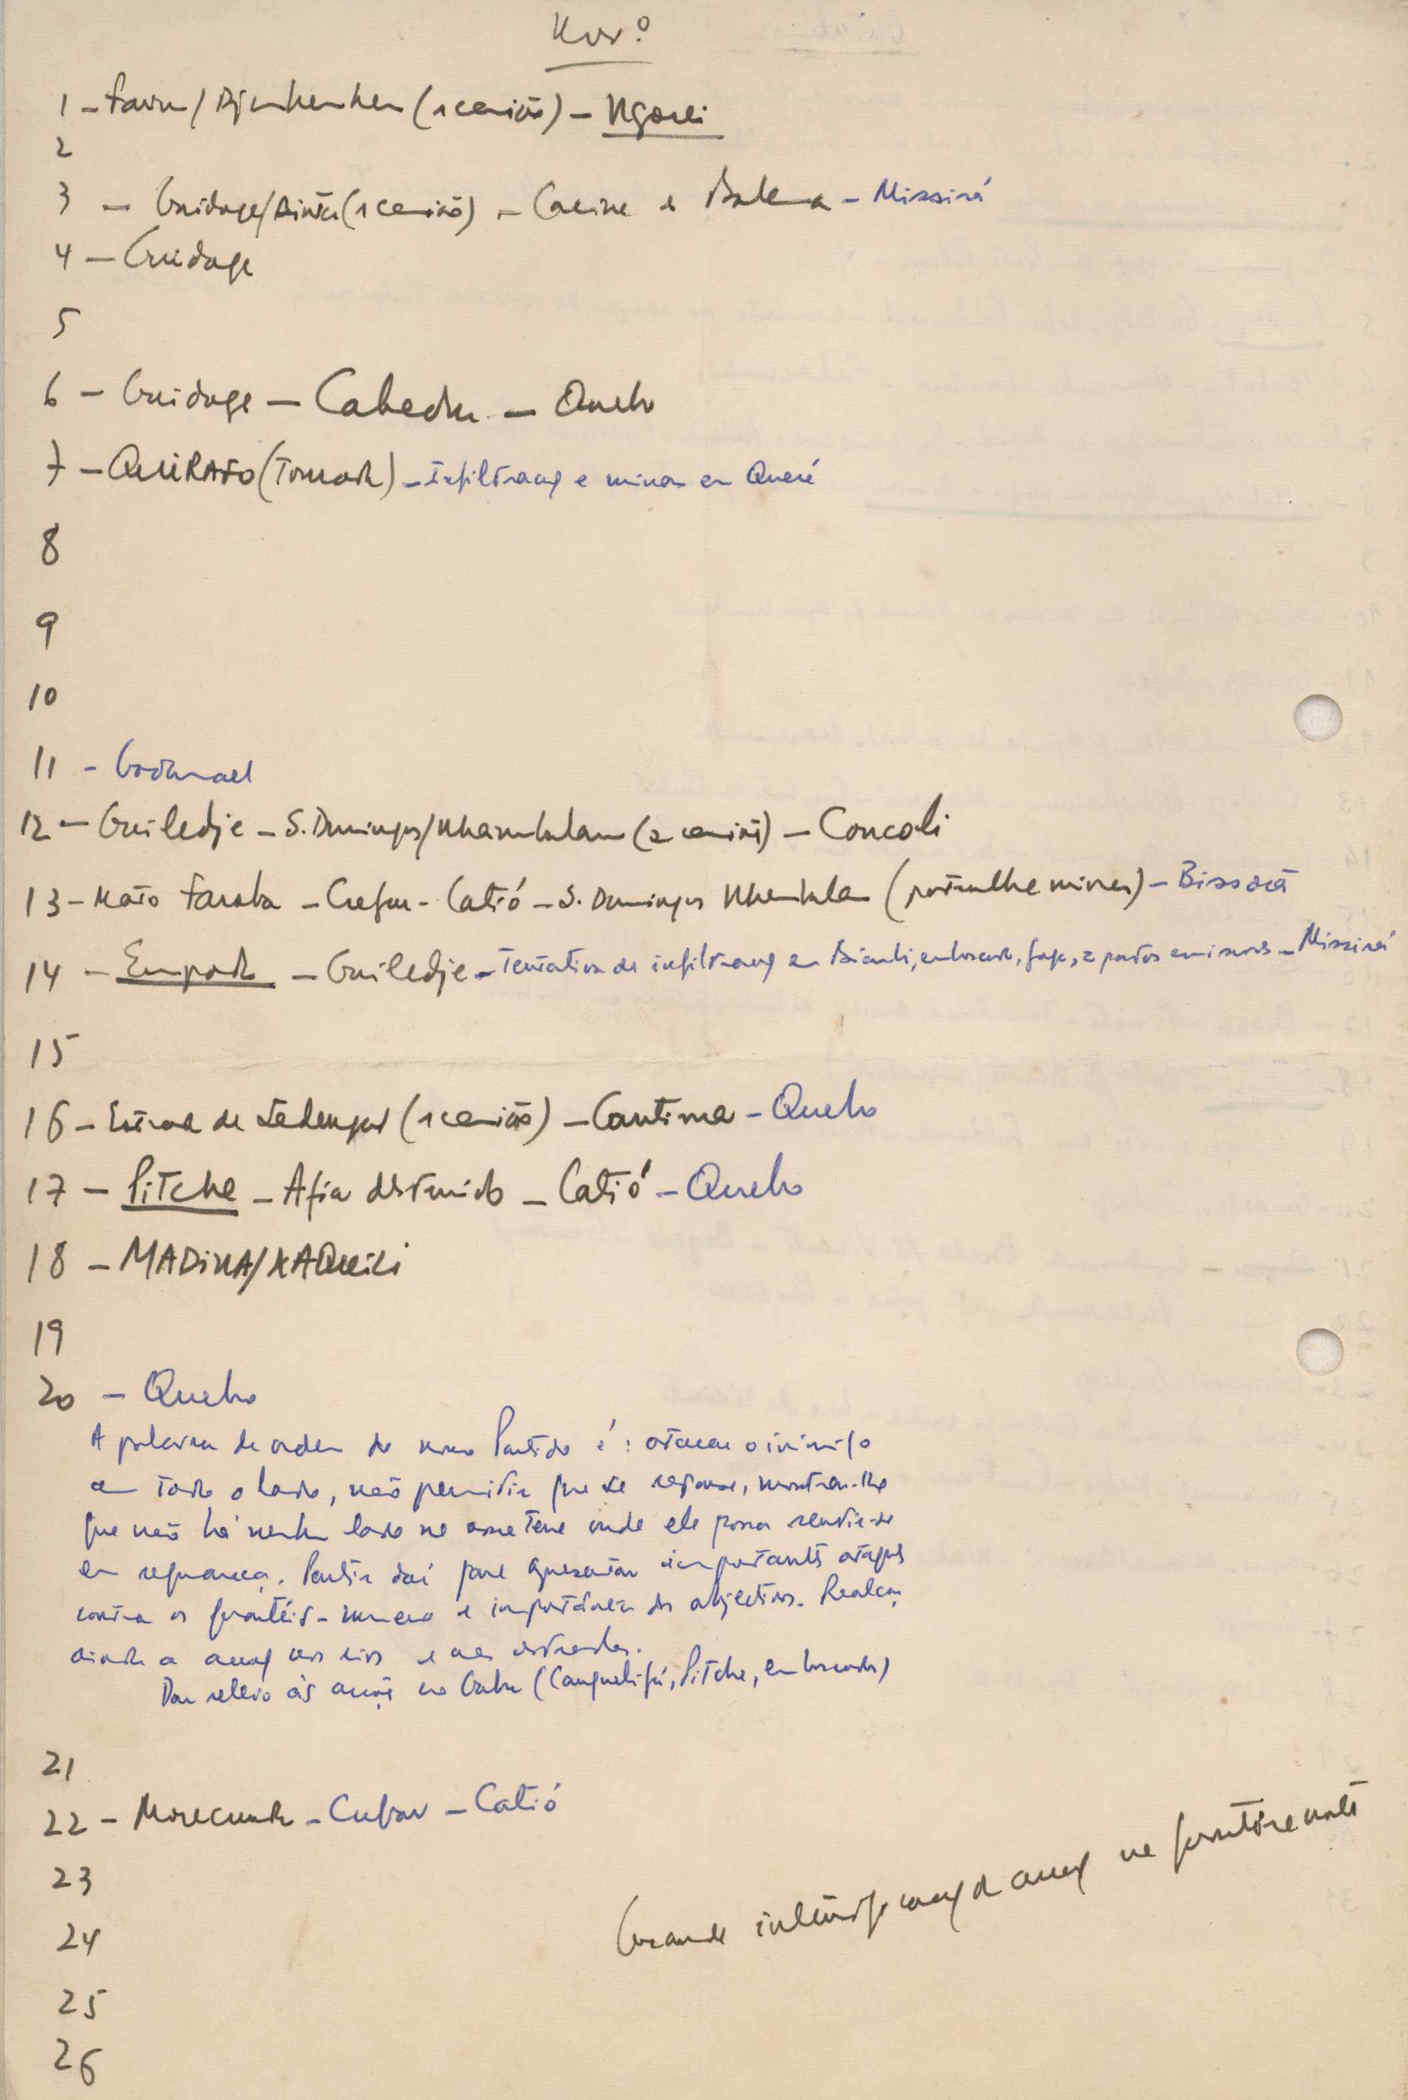 Nov.º
1 - Farim/Djumbembem (1 camião) - Ngoré
2
3 - Guidage/Binta (1 camião) - Cacine e - Missirá
4 - Guidage
5
6 - Guidage - Cabedu - Quebo
7 - QUIRAFO (Tomada) - Infiltração e minas em
8
9
10
11 - Codumael
12 - Guiledje - S. Domingos/Nhambalam (2 camiões) - Concoli
13 - Mato Faroba - Cufar - Catió - S. Domingos Nhambalam (patrulha minas) - Bissorã
14 - Empada - Guiledje - Tentativa de infiltração em, emboscada, fuga, 2 postos emissores - Missirá
15
16 - de Sedengal (1 camião) - Cantima - Quebo
17 - Pitche - Afia destruido - Catió - Quebo
18 - MADINA/XAQUILI
19
20 - Quebo
A palavra de ordem do nosso Partido é: atacar o inimigo
em todo o lado, não permitir que se reforce, mostrar-lhe
que não há nenhum lado na nossa terra onde ele possa sentir-se
em segurança. Partir daí para apresentar importantes ataques
contra os quartéis - número e importância dos objectivos. Realçar
ainda a acção nos rios e nas estradas.
Dar relevo às acções no Gabu (Canquelifá, Pitche, emboscadas)
21
22 - Morecunda - Cufar - Catió
Grande intensificação da acção na fronteira norte
23
24
25
26